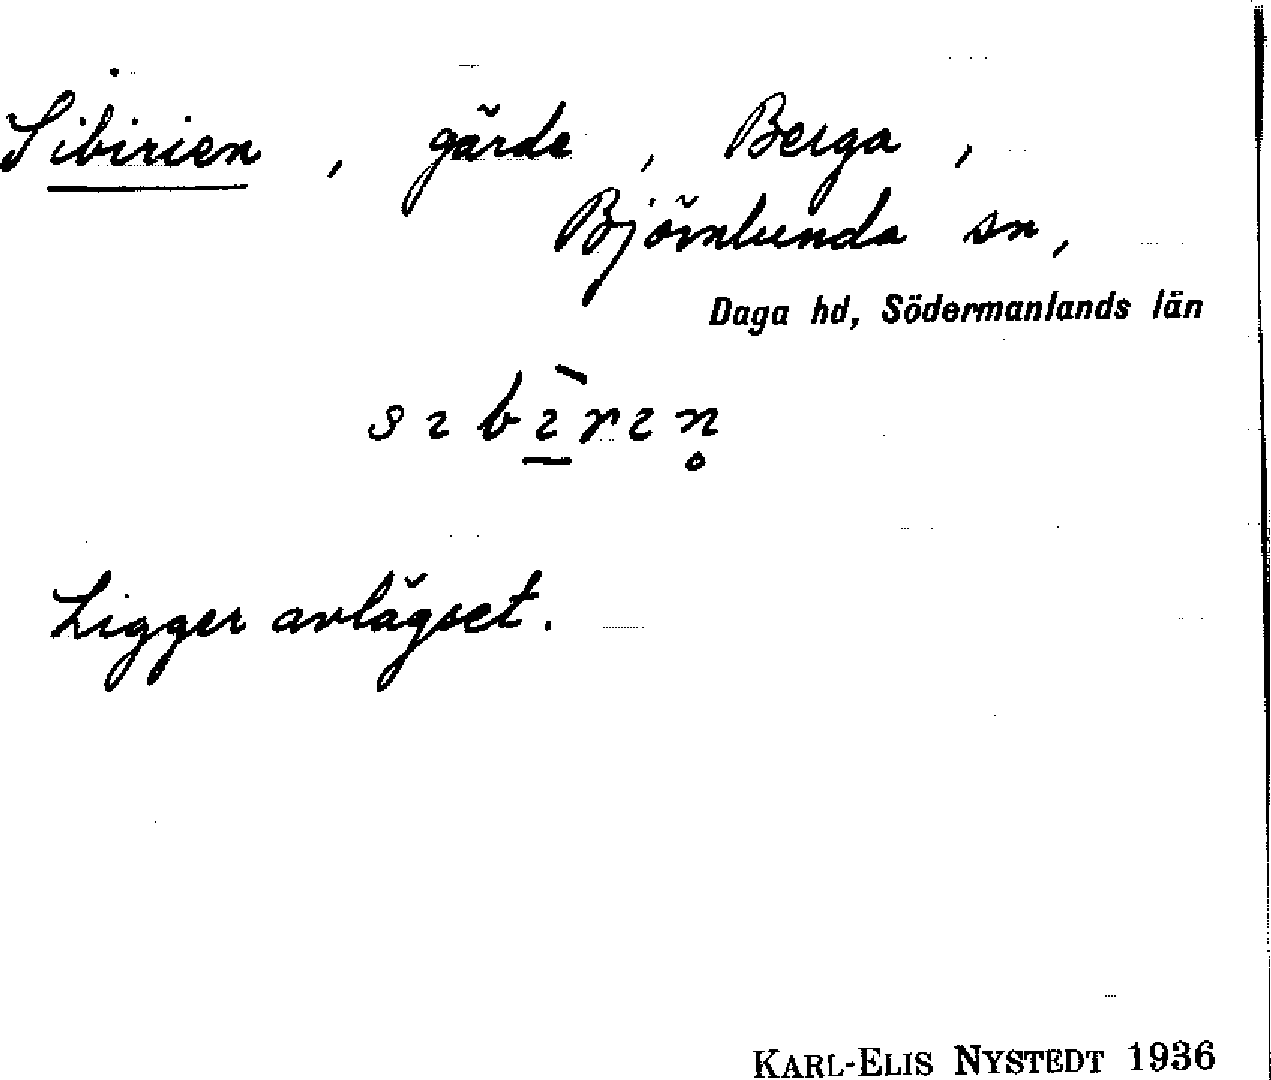 Sibirien, gärde, Berga,
Björnlunda sn,
Daga hd, Södermanlands län
sibìrin̥
Ligger avlägset.
KARL-ELIS NYSTEDT 1936